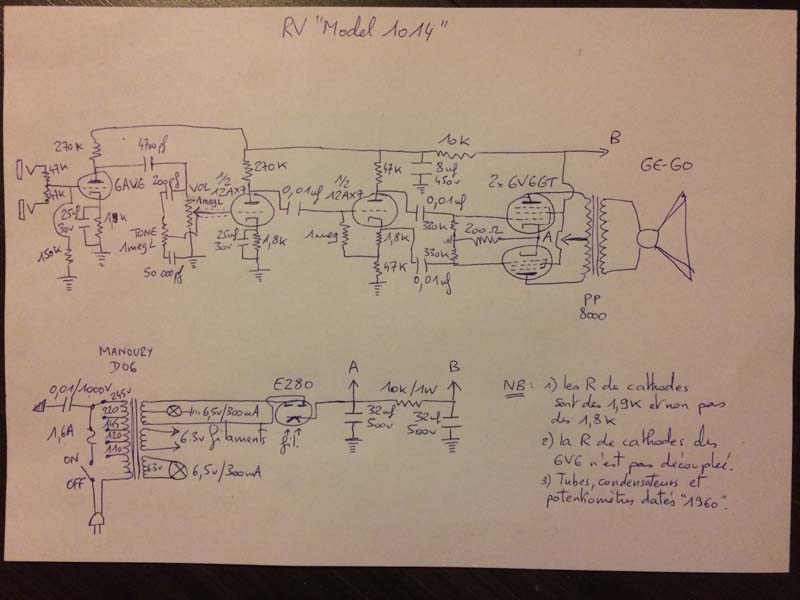 RV "Model 1014"
270K
4700pf
47K
47K
6AV6
200pf
VOL
1megL
25uf
30v
150K
TONE
1megL
50 000pf
1/2
12AX7
270K
0,01uf
25uf
30v
1,8K
1/2
12AX7
47K
1meg
1,8K
47K
0,01uf
0,01uf
10K
8uf
450v
330K
330K
200Ω
2x 6V6GT
A
B
PP
8000
GE-GO
MANOURY
D06
0,01/1000V
245v
220
145
120
110
1,6A
ON
OFF
6,5v/300mA
6.3v filaments
6.3v
6,5v/300mA
E280
fil.
A
32uf
500v
10K/1W
B
32uf
500v
NB: 1) les R de cathodes
sont des 1,9K et non pas
des 1,8K
2) la R de cathodes des
6V6 n'est pas découplée.
3) Tubes, condensateurs et
potentiomètres datés "1960".